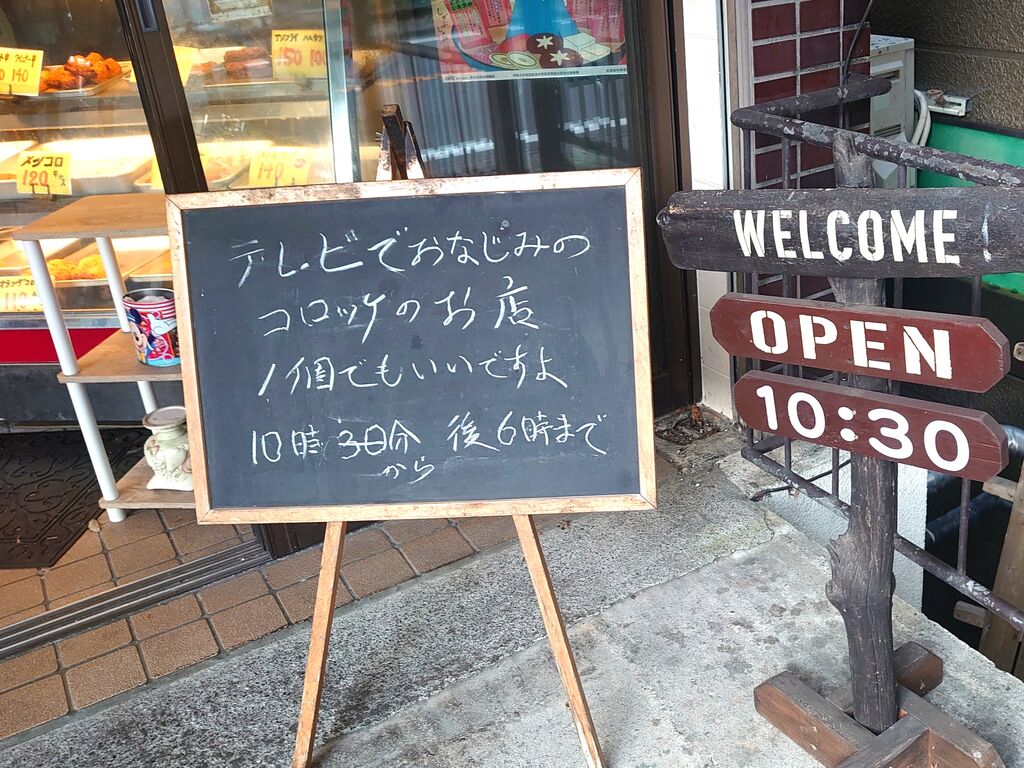 テレビでおなじみの
コロッケのお店
1個でもいいですよ
10時30分 後6時まで
から
WELCOME!
OPEN
10:30
メンチコロ
120
140
150
110